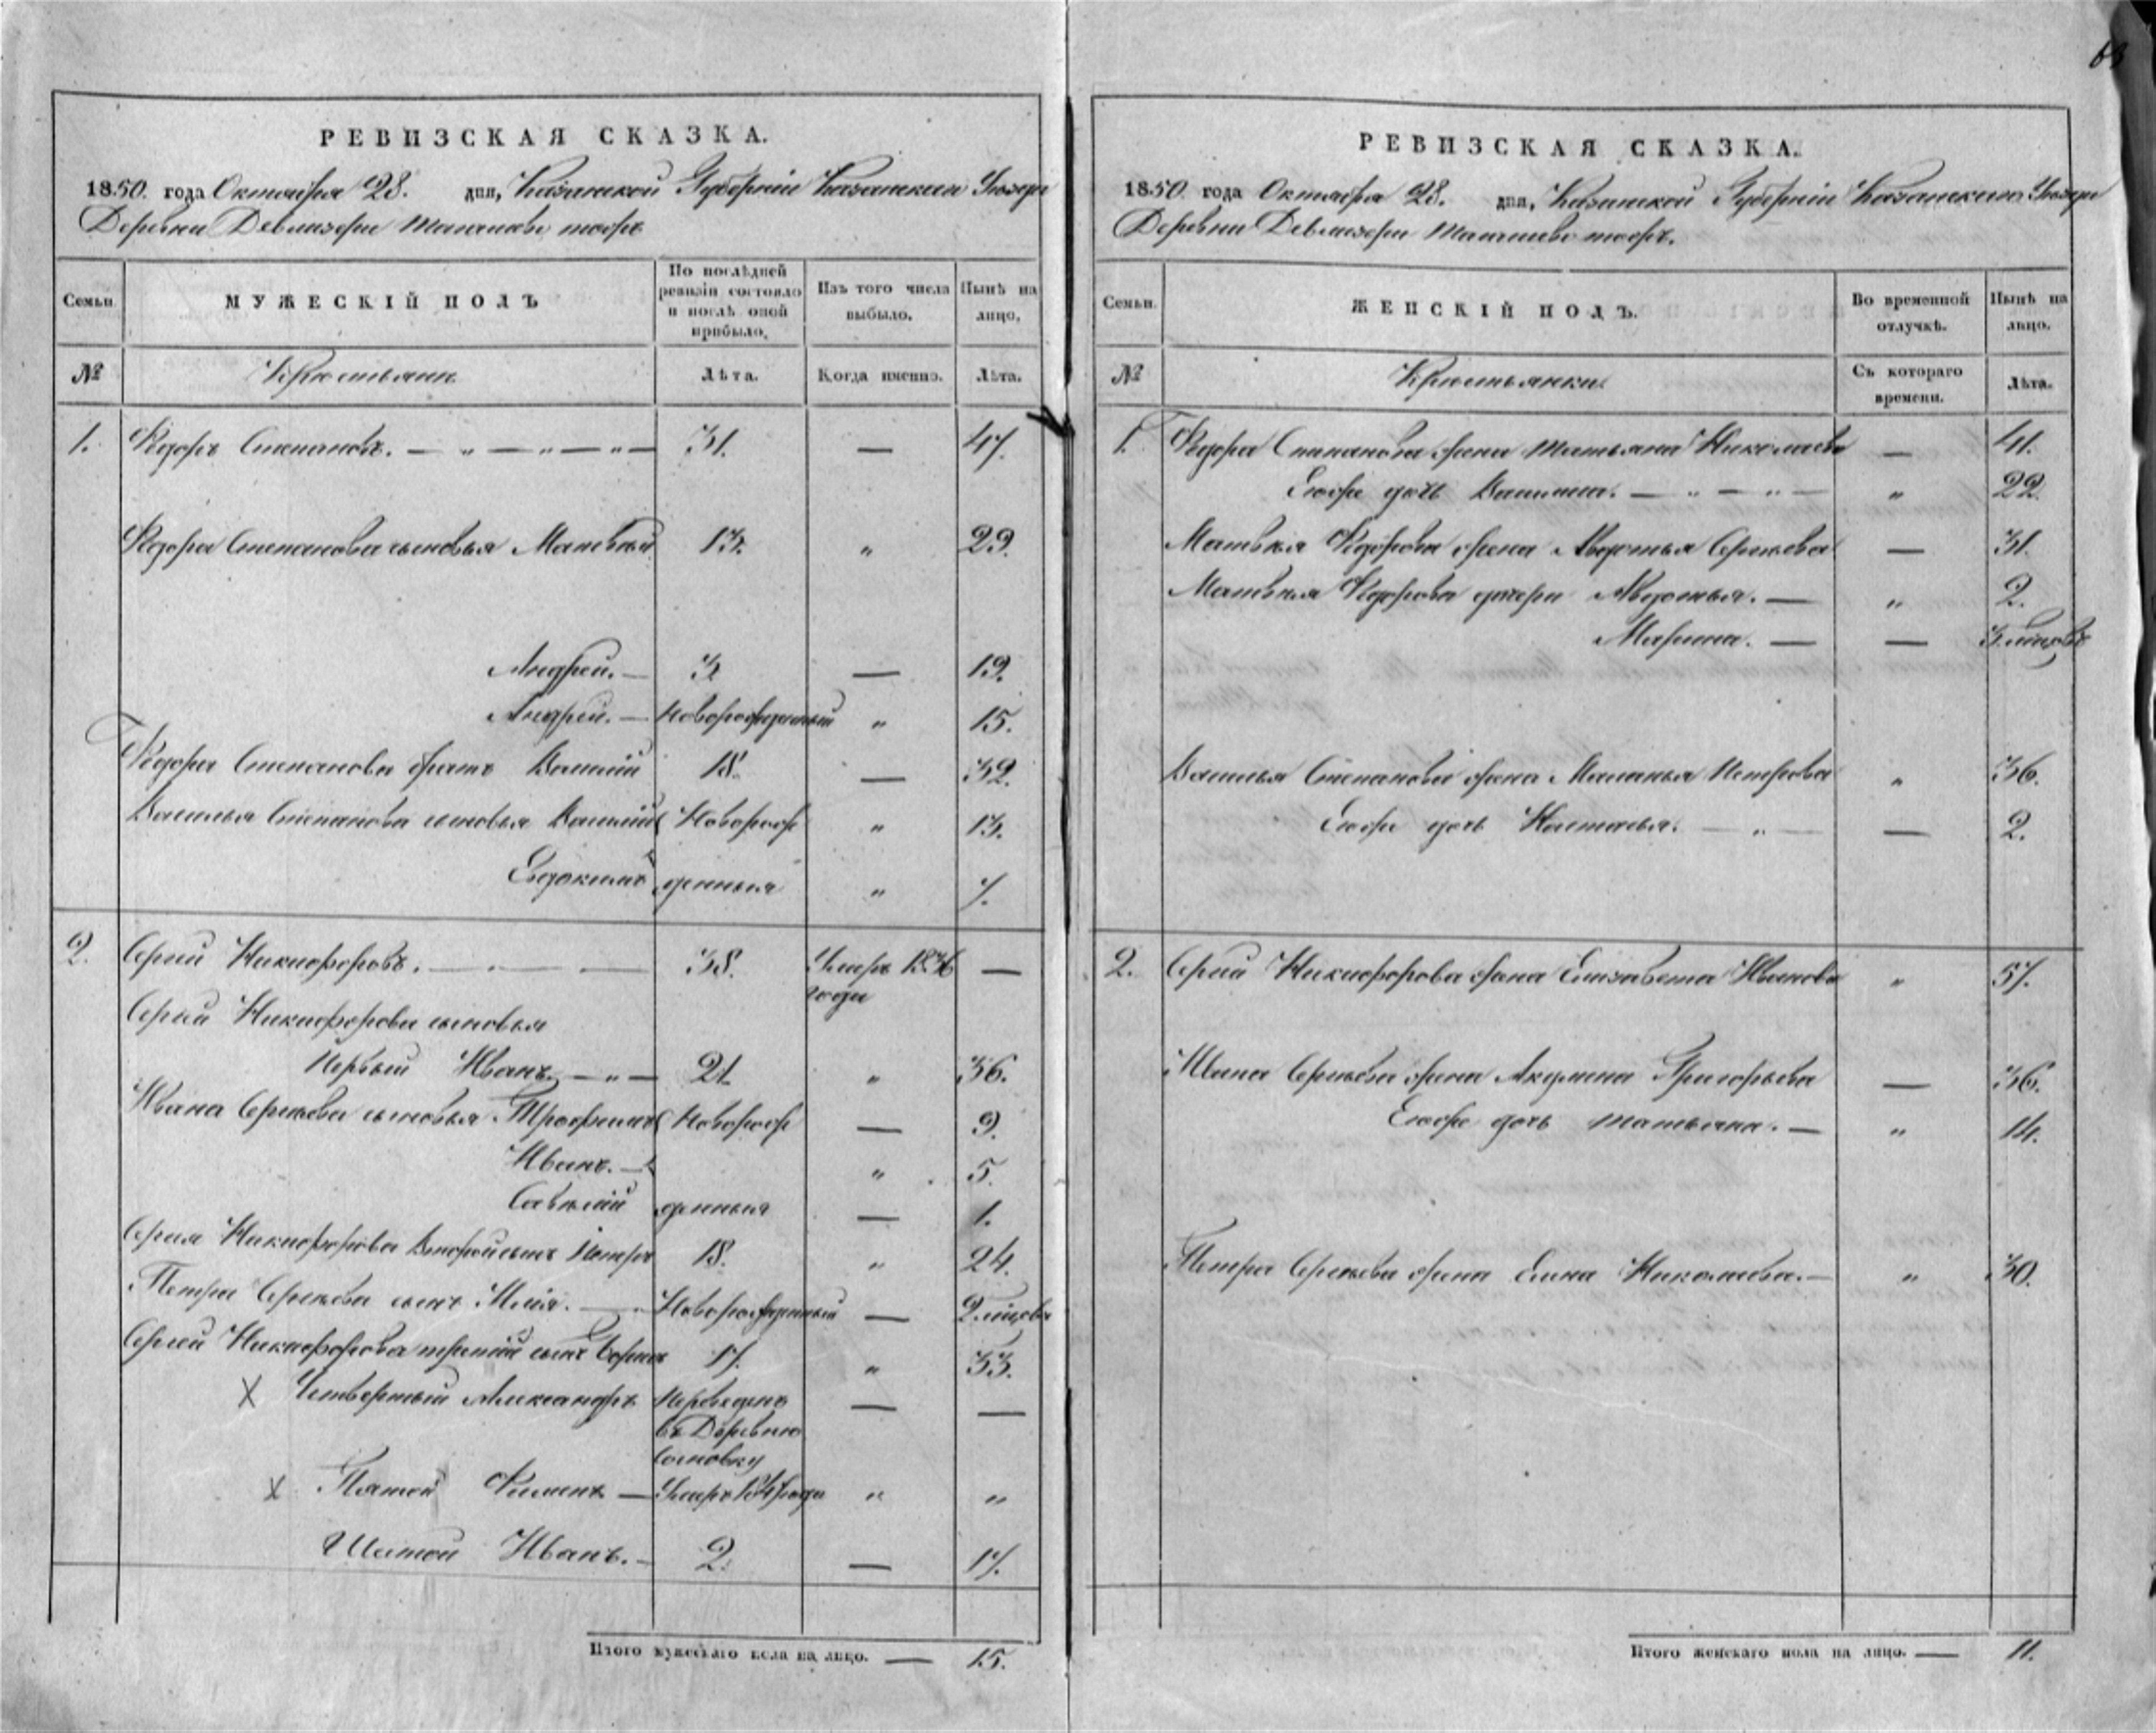 63
РЕВИЗСКАЯ СКАЗКА.
1850. года Октября 28. дня, Казанской Губерніи Казанскаго Уезда
Деревни Девлизери
Семьи.
МУЖЕСКІЙ ПОЛЪ
По послѣдней ревизіи состояло и послѣ оной прибыло.
Изъ того числа выбыло.
Нынѣ на лицо.
№
Крестьяне
Лѣта.
Когда именно.
Лѣта.
1. Федоръ Степановъ. — „ — „ — „ — 31. — 47.
Федора Степанова сыновья Матвей 13. „ 29.
Андрей. — 3 — 19.
Андрей. — Новорожденный „ 15.
Федора Степанова братъ Василий 18. — 32.
Василья Степанова сыновья Василий Новорож „ 13.
Евдокимъ денныя „ 7.
2. Сергий Никифоровъ. — 38. Умеръ 1836 года —
Сергия Никифорова сыновья
Первый Иванъ. — „ — 21. „ 36.
Ивана Сергеева сыновья Трофимъ Новорож — 9.
Иванъ. — „ 5.
Савелий денныя — 1.
Сергия Никифорова Второй сынъ Петръ 18. „ 24.
Петра Сергеева сынъ Илия. — Новорожденный — 2 месяцовъ
Сергия Никифорова третий сынъ 17. „ 33.
X Четвертый Александръ Переведенъ — —
въ Деревню
Сосновку
X Пятой — Умеръ „ „
Шестой Иванъ. — 2. — 17.
Итого мужескаго пола на лицо. — 15.
РЕВИЗСКАЯ СКАЗКА.
1850. года Октября 28. дня, Казанской Губерніи Казанскаго Уезда
Деревни Девлизери
Семьи.
ЖЕНСКІЙ ПОЛЪ.
Во временной отлучкѣ.
Нынѣ на лицо.
№
Крестьянки.
Съ котораго времени.
Лѣта.
1. Федора Степанова жена Татьяна Николаева — 41.
Егоже дочь Василиса. — „ — „ — „ 22.
Матвея Федорова жена Авдотья Сергеева — 31.
Матвея Федорова дочери Авдотья. — „ 2.
Марина. — — 3 месяцовъ
Василья Степанова жена Маланья Петрова „ 36.
Егоже дочь Настасья. — „ — — 2.
2. Сергия Никифорова жена Елизавета Иванова „ 57.
Ивана Сергеева жена Акулина Григорьева — 36.
Егоже дочь Татьяна. — „ 14.
Петра Сергеева жена Елена Николаева. — „ 30.
Итого женскаго пола на лицо. — 11.